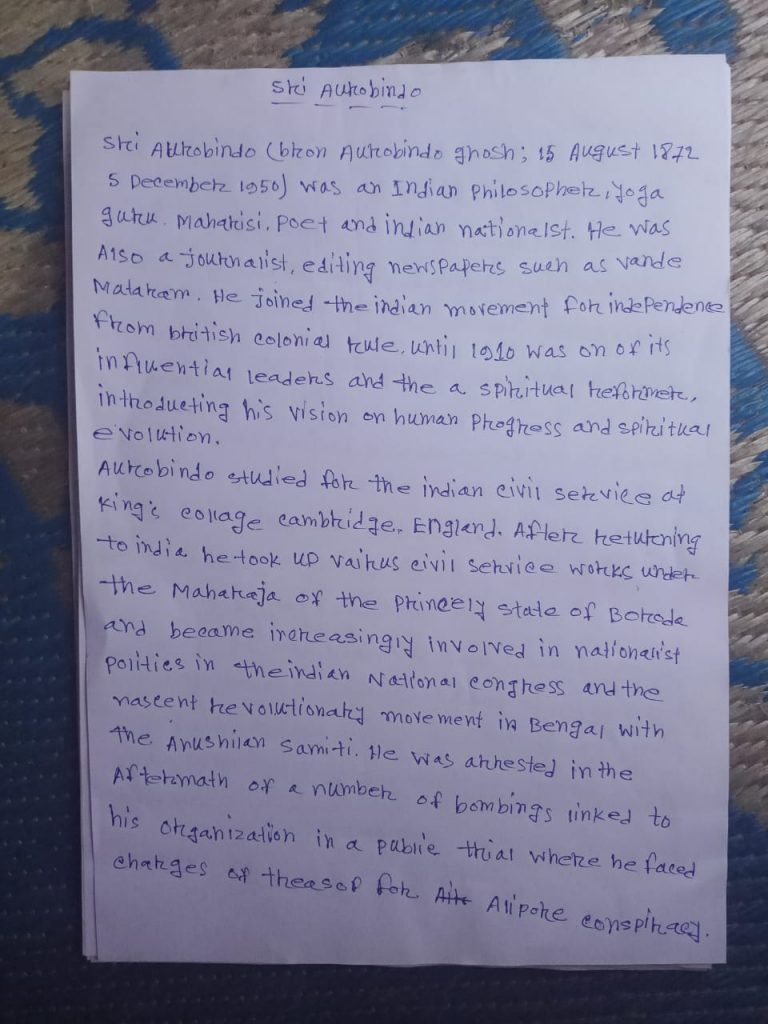 Sri Aurobindo
Sri Aurobindo (bron Aurobindo ghosh; 15 August 1872
5 December 1950) was an Indian philosopher, yoga
guru. Maharisi, poet and indian nationalst. He was
Also a journalist, editing newspapers such as vande
Mataram. He joined the indian movement for independence
from british colonial rule, until 1910 was on of its
influential leaders and the a spiritual reformer,
introducting his vision on human progress and spiritual
evolution.
Aurobindo studied for the indian civil service at
King's collage cambridge, England. After returning
to india he took up vairus civil service works under
the Maharaja of the princely state of Boroda
and became increasingly involved in nationalist
politics in the indian National congress and the
nascent revolutionary movement in Bengal with
the Anushilan samiti. He was arrested in the
Aftermath of a number of bombings linked to
his organization in a public trial where he faced
charges of threasof for Alipore conspiracy.